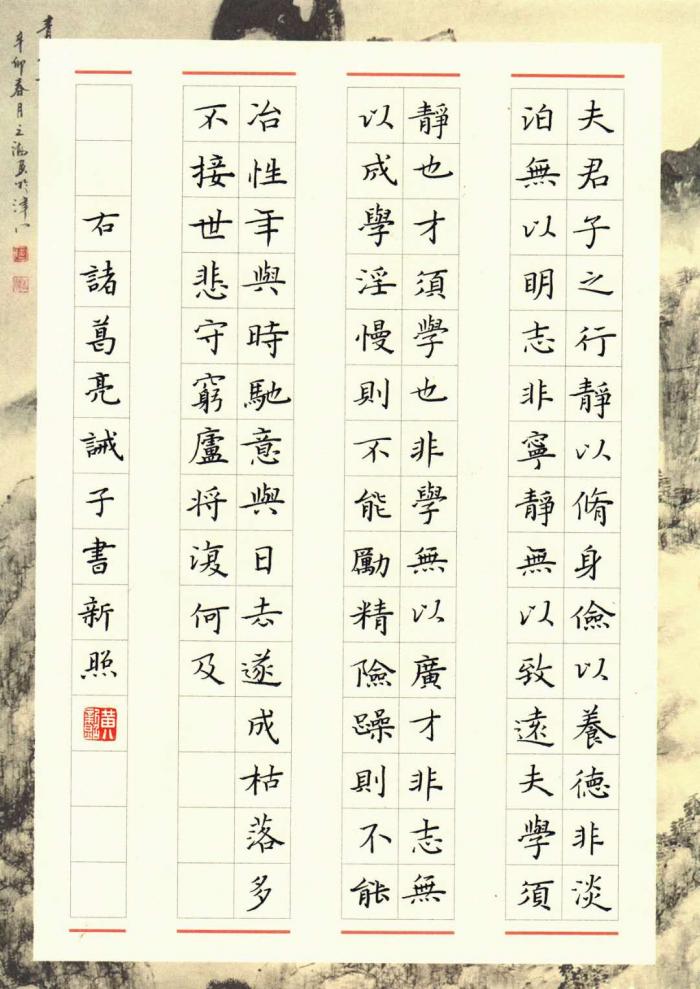 夫君子之行靜以脩身儉以養德非淡
泊無以明志非寧靜無以致遠夫學須
靜也才須學也非學無以廣才非志無
以成學淫慢則不能勵精險躁則不能
冶性年與時馳意與日去遂成枯落多
不接世悲守窮廬将復何及
右諸葛亮誡子書新照
辛卯春月